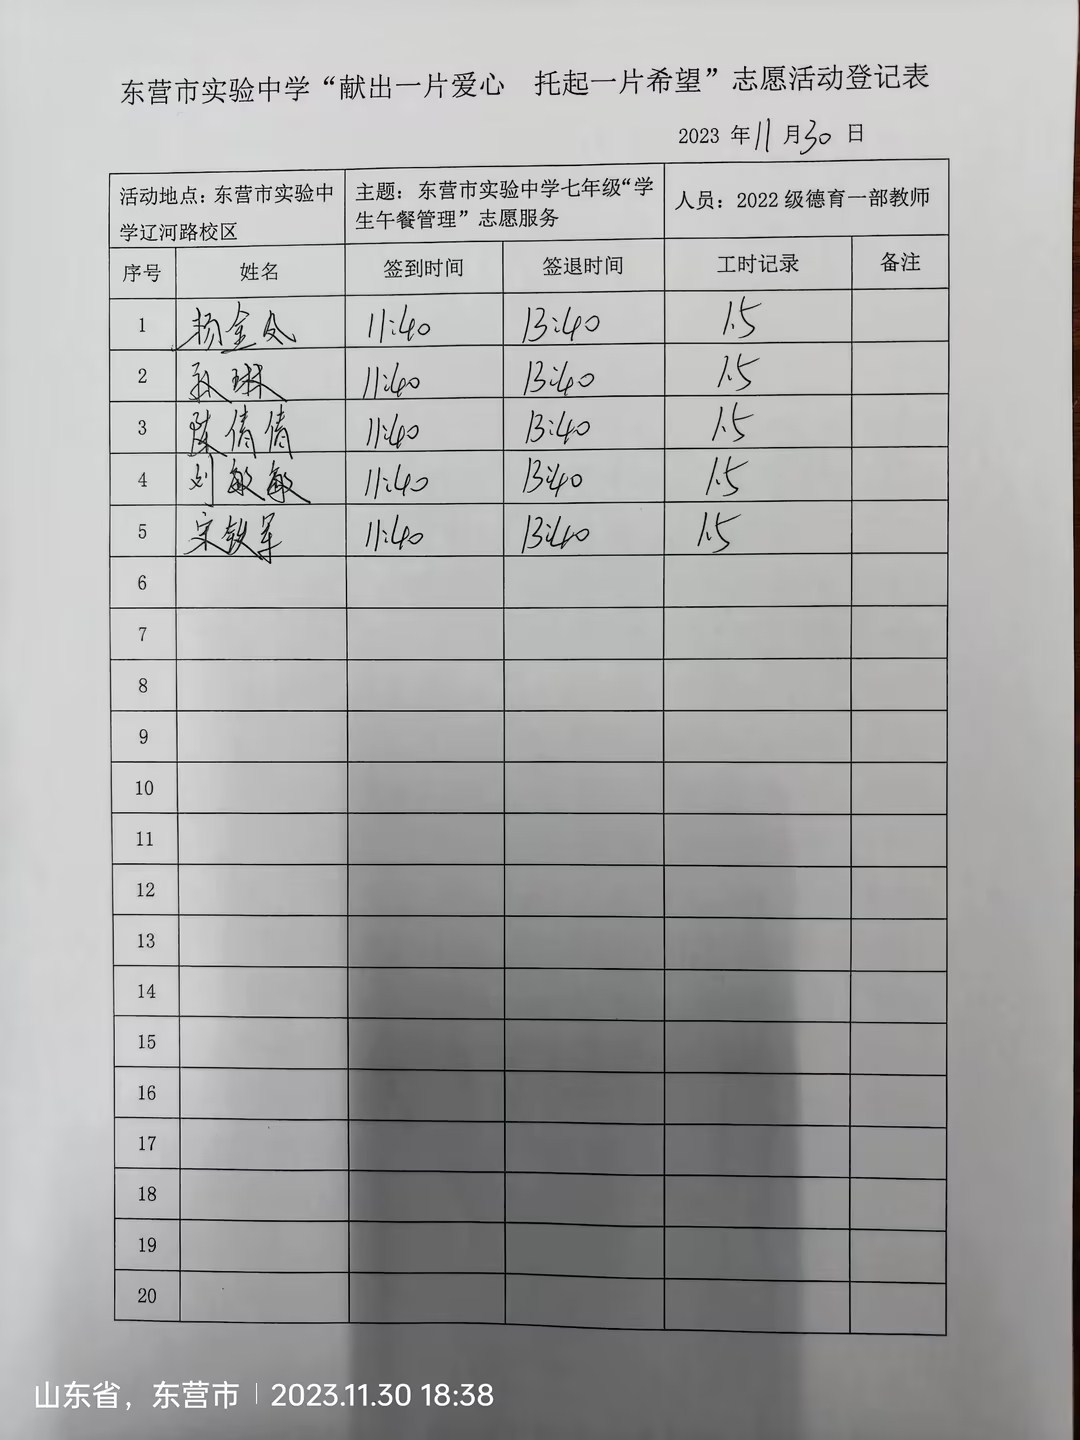 东营市实验中学“献出一片爱心　托起一片希望”志愿活动登记表
2023 年 11 月 30 日
活动地点：东营市实验中学辽河路校区 主题：东营市实验中学七年级“学生午餐管理”志愿服务 人员：2022 级德育一部教师
序号 姓名 签到时间 签退时间 工时记录 备注
1 杨金凤 11:40 13:40 1.5
2 孙琳 11:40 13:40 1.5
3 陈倩倩 11:40 13:40 1.5
4 刘敏敏 11:40 13:40 1.5
5 宋铁军 11:40 13:40 1.5
6
7
8
9
10
11
12
13
14
15
16
17
18
19
20
山东省，东营市 | 2023.11.30 18:38